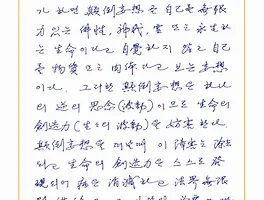 가 하면 顚倒妄想은 自己를 無限
力 있는 佛性, 神我, 靈 또는 永生하
는 生命이라고 自覺하지 않고 自己
를 物質 또는 肉體라고 보는 妄想
이다. 그러한 顚倒妄想은 하나
의 逆의 思念(波動)이므로 生命의
創造力(生々의 波動)을 妨害한다.
顚倒妄想을 여읠 때 이 障害는 除去
되고 生命의 創造力은 스스로 發
現되어 病은 消滅하고 法界無限